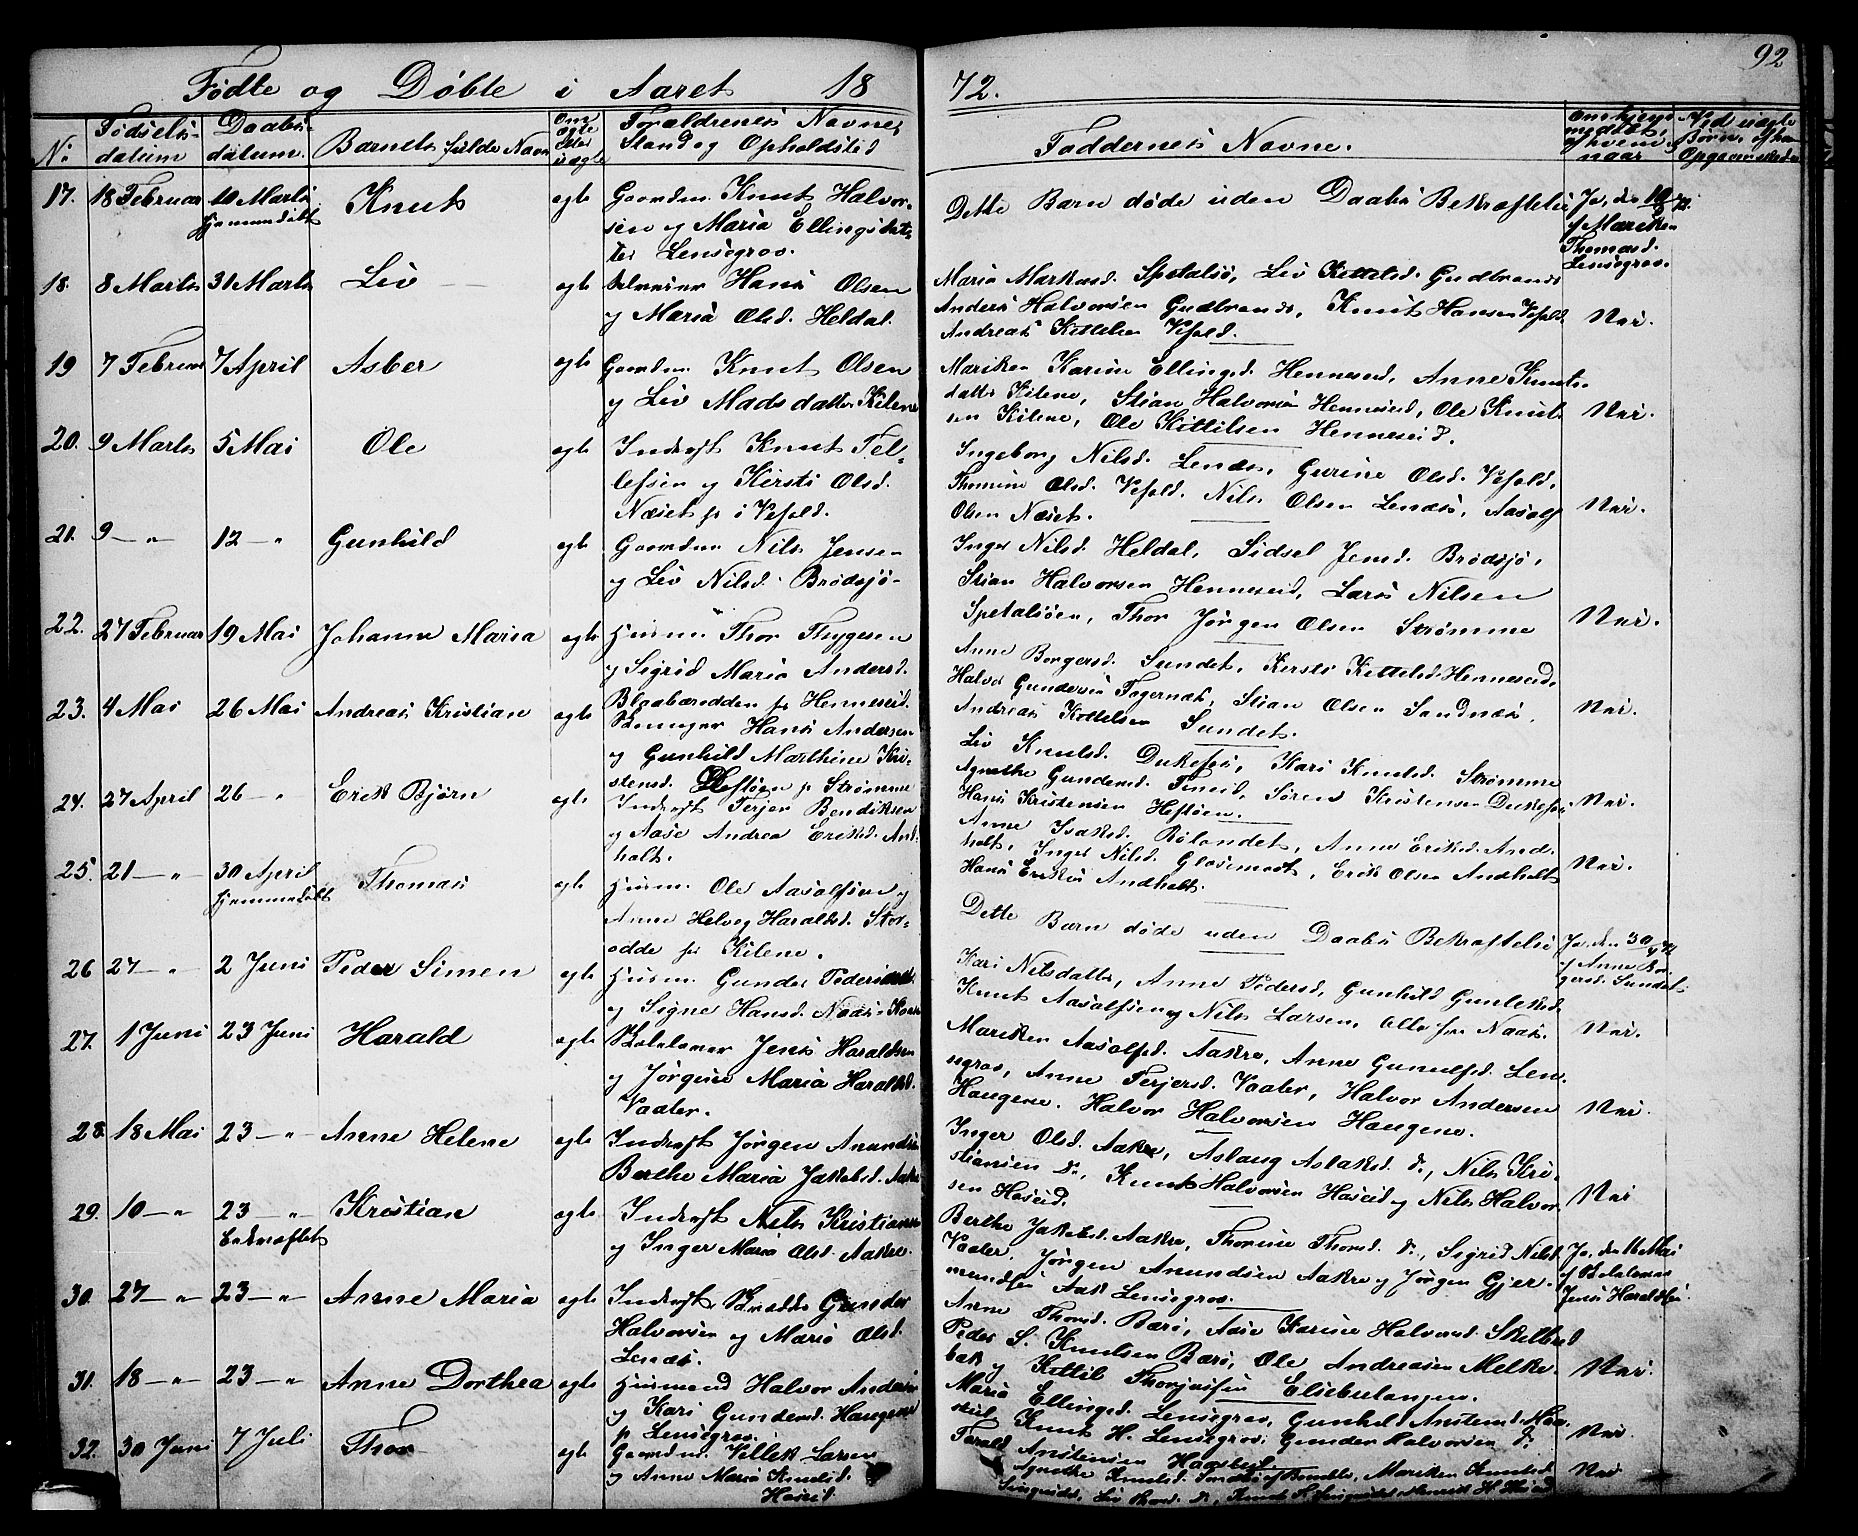 92
Fødte og Døbte i Aaret 18 72.
No Fødsels- datum Daabs- datum. Barnets fulde Navn Om ægte eller uægte Forældrenes Navne, Stand og Opholdsted Faddernes Navne. Om hjemmedøbt, af hvem, naar Ved uægte Børn
17. 18 Februar 10 Marts hjemmedøbt Knut ægte Gaardm. Knut Halvor-
sen og Maria Ellingsdat-
ter Lensegrav.
Dette Barn døde uden Daabs Bekræftelse
Ja, d. 10/3 72
af Mariken
Thomasd.
Lensegrav.
18. 8 Marts 31 Marts Liv ægte Hans Olsen
og Maria Olsd. Heldal.
Maria Markusd. Spetalsø, Liv Kittelsd. Gudbrands
Anders Halvorsen Gudbrands, Knut Hansen Vefald
Andreas Kittelsen Vefald.
Nei.
19 7 Februar 7 April Asber ægte Gaardm. Knut Olsen
og Liv Madsdatter Kilene
Mariken Karine Ellingsd. Henneseid, Anne Knuts-
datter Kilene, Stian Halvorsen Henneseid, Ole Knut-
sen Kilene, Ole Kittilsen Henneseid.
Nei.
20. 9 Marts 5 Mai Ole ægte Inderst Knut Tel-
lefsen og Kirsti Olsd.
Næset p. i Vefald.
Ingeborg Nilsd. Lenæs, Gurine Olsd. Vefald,
Thomine Olsd. Vefald. Nils Olsen Lenæs, Aasolf
Olsen Næset.
Nei.
21. 9 — „ 12 — „ Gunhild ægte Gaardm. Nils Jensen
og Liv Nilsd. Brødsjø-
Inger Nilsd. Heldal, Sidsel Jensd. Brødsjø,
Stian Halvorsen Henneseid, Lars Nilsen
Spetalsøen, Thor Jørgen Olsen Strømme
Nei.
22. 27 Februar 19 Mai Johanne Maria ægte Husm. Thor Thygesen
og Sigrid Maria Andersd.
Blaabærodden p. Henneseid.
Anne Borgersd. Sundet, Kirsti Kittelsd. Henneseid,
Halvor Gundersen Fagernæs, Stian Olsen Sandnæs,
Andreas Kittelsen Sundet.
Nei.
23. 4 Mai 26 Mai Andreas Kristian ægte Hans Andersen
og Gunhild Marthine Kri-
stensd. Heftøen p. Strømme
Liv Knutsd. Dukefos, Kari Knutsd. Strømme
Agnethe Gundersd. Søren Kristensen Dukefos
Hans Kristensen Heftøen.
Nei.
24. 27 April 26 — „ Erik Bjørn ægte Inderst Terjer Bendiksen
og Aase Andrea Eriksd. And-
holt.
Anne Isaksd. Rølandet, Anne Eriksd. And-
holt, Inger Nilsd. Erik Olsen Andholt
Hans Eriksen Andholt.
Nei.
25. 21 — „ 30 April hjemmedøbt Thomas ægte Husm. Ole Aasolfsen og
Anne Helvig Haraldsd. Stor-
odde p. Kilene.
Dette Barn døde uden Daabs Bekræftelse
Ja, den 30/4 72
af Anne Bor-
gersd. Sundet
26 27 — „ 2 Juni Peder Simen ægte Husm. Gunder Pedersen
og Signe Hansd. Naas
Kari Nilsdatter, Anne Pedersd, Gunhild Gunleksd.
Knut Aasolfsen og Nils Larsen, alle fra Naas.
Nei.
27. 1 Juni 23 Juni Harald ægte Skolelærer Jens Haraldsen
og Jørgine Maria Haraldsd.
Vaaler.
Mariken Aasolfsd. Aakre, Anne Gunulfsd. Len-
segrav, Anne Terjersd. Vaaler, Halvor Andersen
Haugene. Halvor Halvorsen Haugene.
Nei.
28. 18 Mai 23 — „ Anne Helene ægte Inderst Jørgen Anundsen
Berthe Maria Jakobsd. Aakre
Inger Olsd. Aakre, Aslaug Aslaksd. do., Nils Kri-
stiansen do., Knut Halvorsen Haseid og Nils Halvor-
sen Haseid.
Nei
29. 10 — „ 23 — „ bekræftet Kristian ægte Inderst Nils Kristiansen
og Inger Maria Olsd. Aakre.
Berthe Jakobsd. Aakre, Thorine Thorsd. do., Sigrid Nilsd.
Vaaler. Jørgen Anundsen Aakre og Jørgen Gjer-
mundsen Aas Lensegrav.
Ja, den 16 Mai
af Skolelærer
Jens Haraldsen.
30. 27 — „ 23 — „ Anne Maria ægte Inderst Gunder
Halvorsen og Maria Olsd.
Lenæs.
Anne Thorsd. Barø, Aase Karine Halvorsd.
Peder S. Knudsen Barø, Ole Andreasen Melke-
bæk og Kittil Thorjusen
Nei.
31. 18 — „ 23 — „ Anne Dorthea ægte Husmand Halvor Andersen
og Kari Gundersd. Haugene
p. Lensegrav.
Maria Ellingsd. Lensegrav, Gunhild
Knut H. Lensegrav, Gunder Halvorsen do.
Nei.
32. 30 Juni 7 Juli Thor ægte Gaardm. Vellek Larsen
og Anne Maria Knutsd.
Haseid.
Agnethe Knutsd. Mariken Knutsd.
Nei